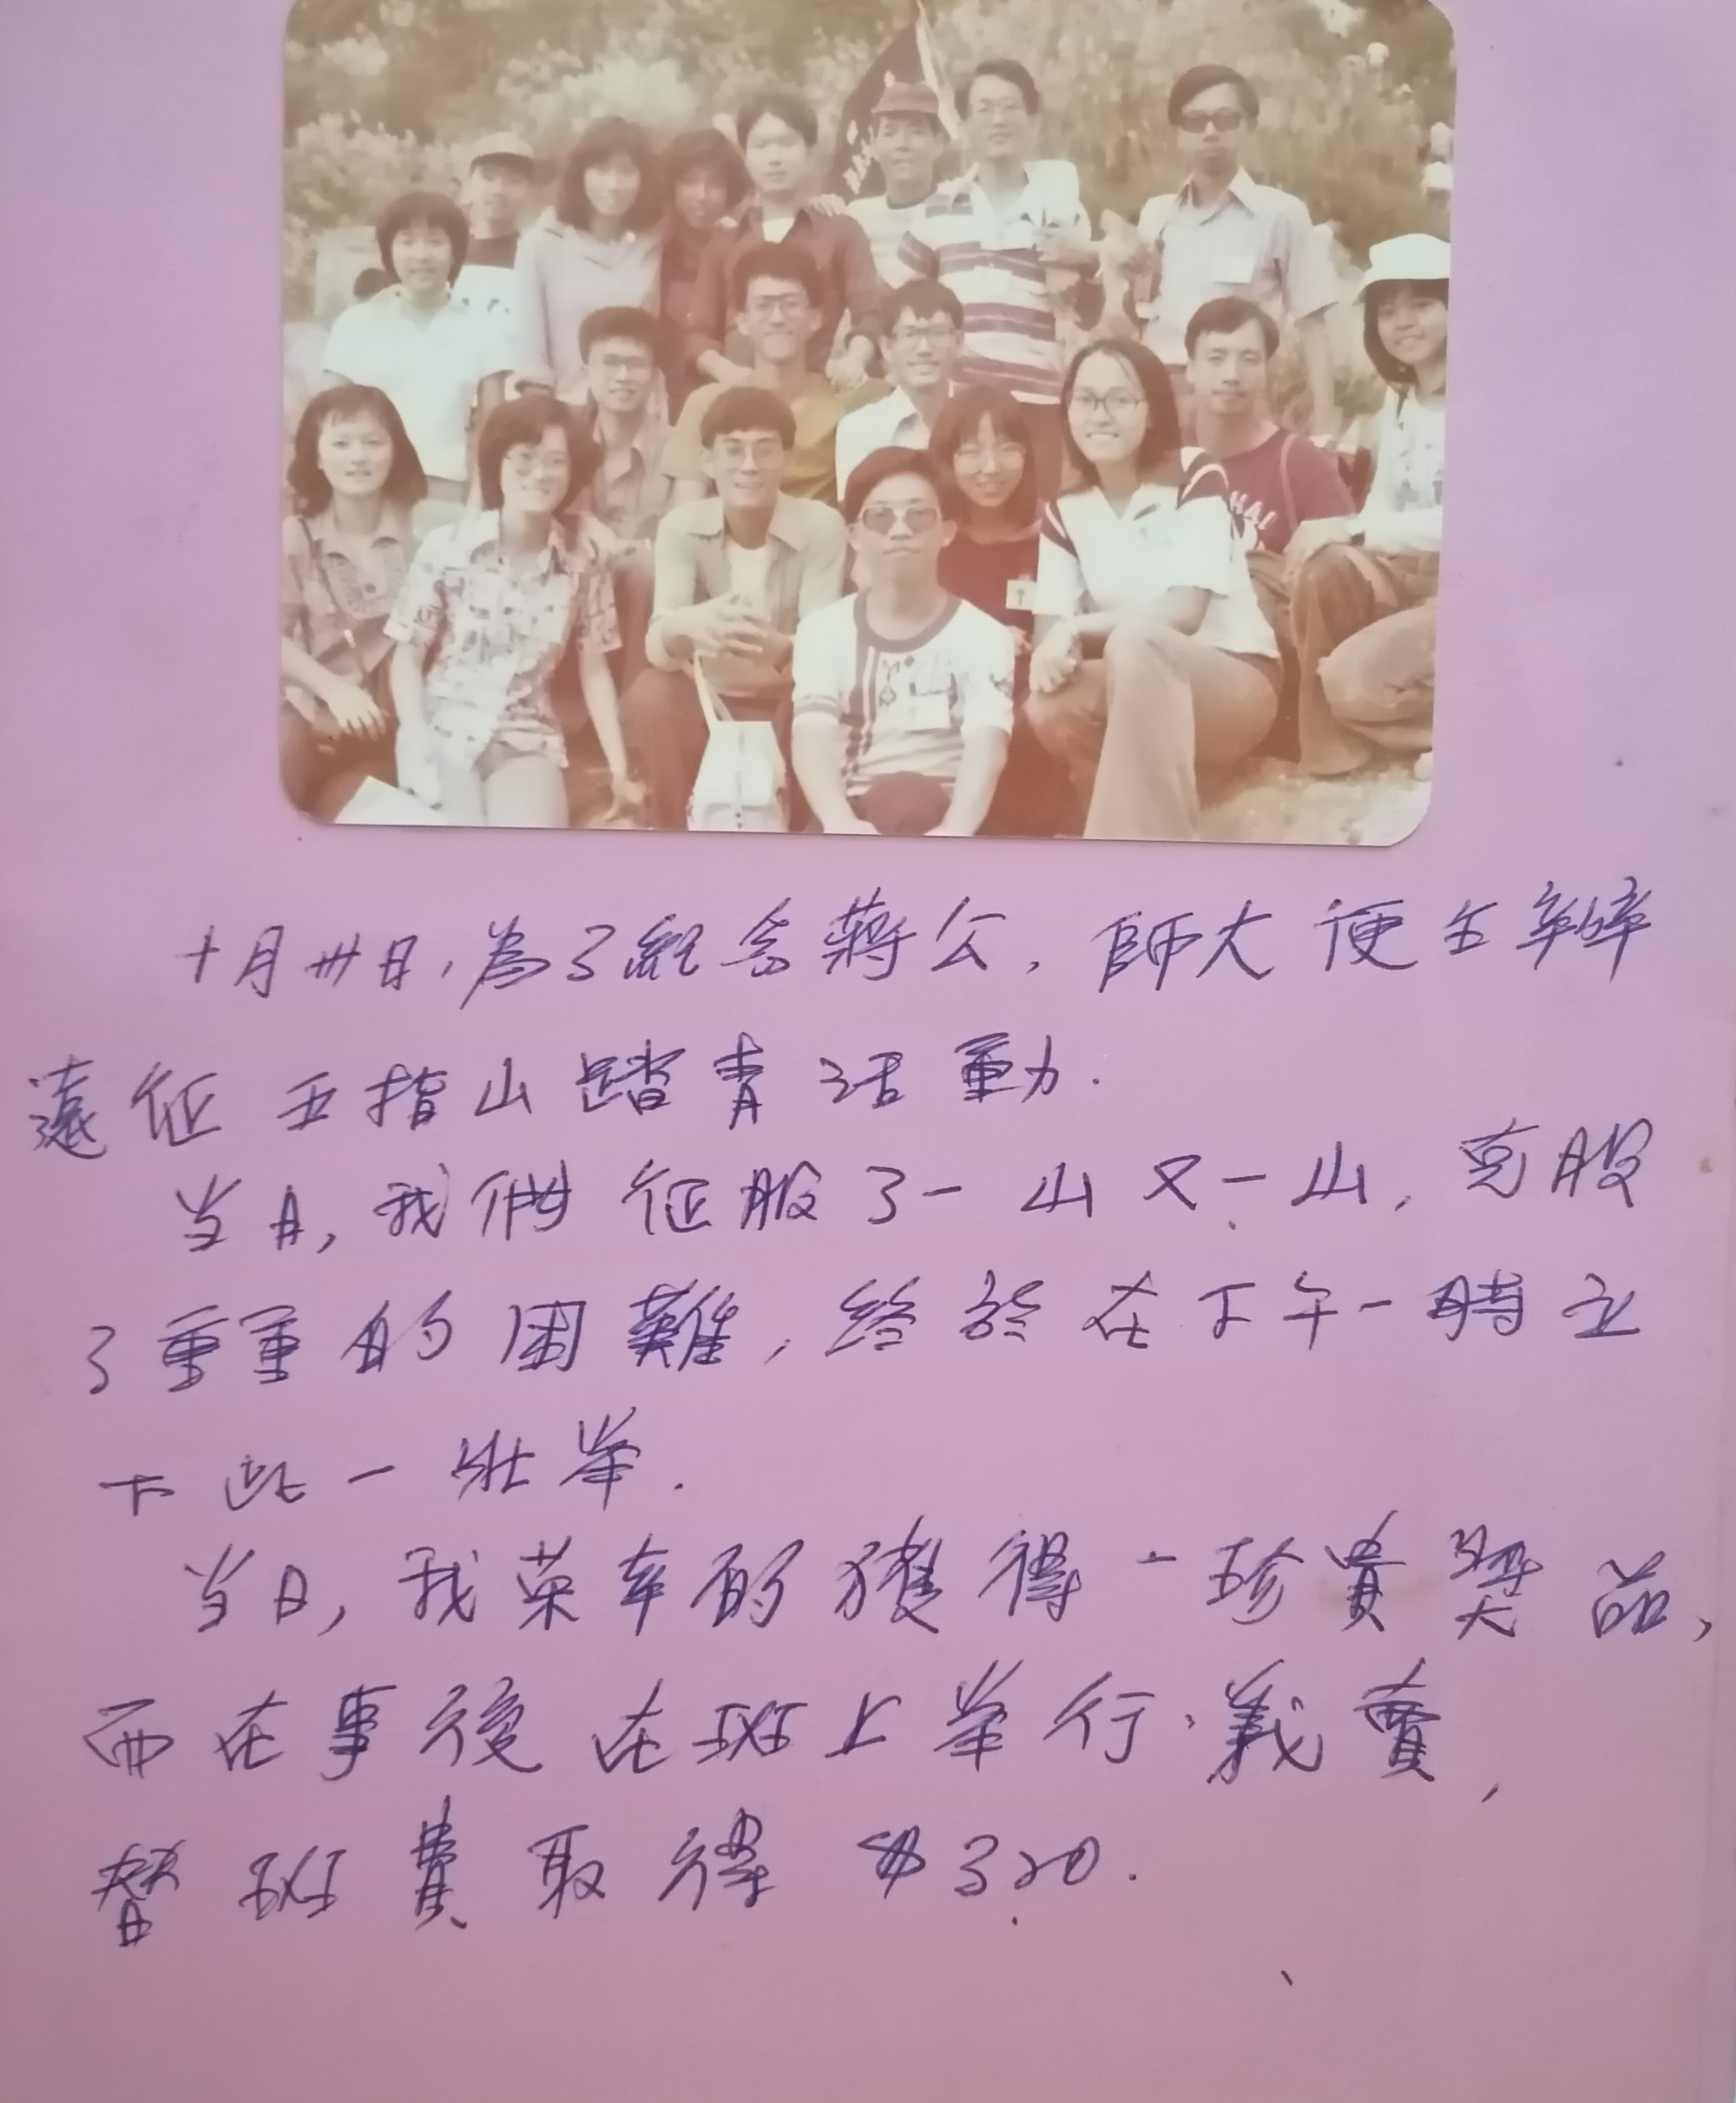 HAI
十月卅日，為了紀念蔣公，師大便主辦
遠征五指山踏青活動．
当日，我們征服了一山又一山，克服
了重重的困難，終於在下午一時立
下此一壯举．
当日，我荣幸的獲得一珍貴獎品，
而在事後在班上举行義賣，
替班費取得$320．